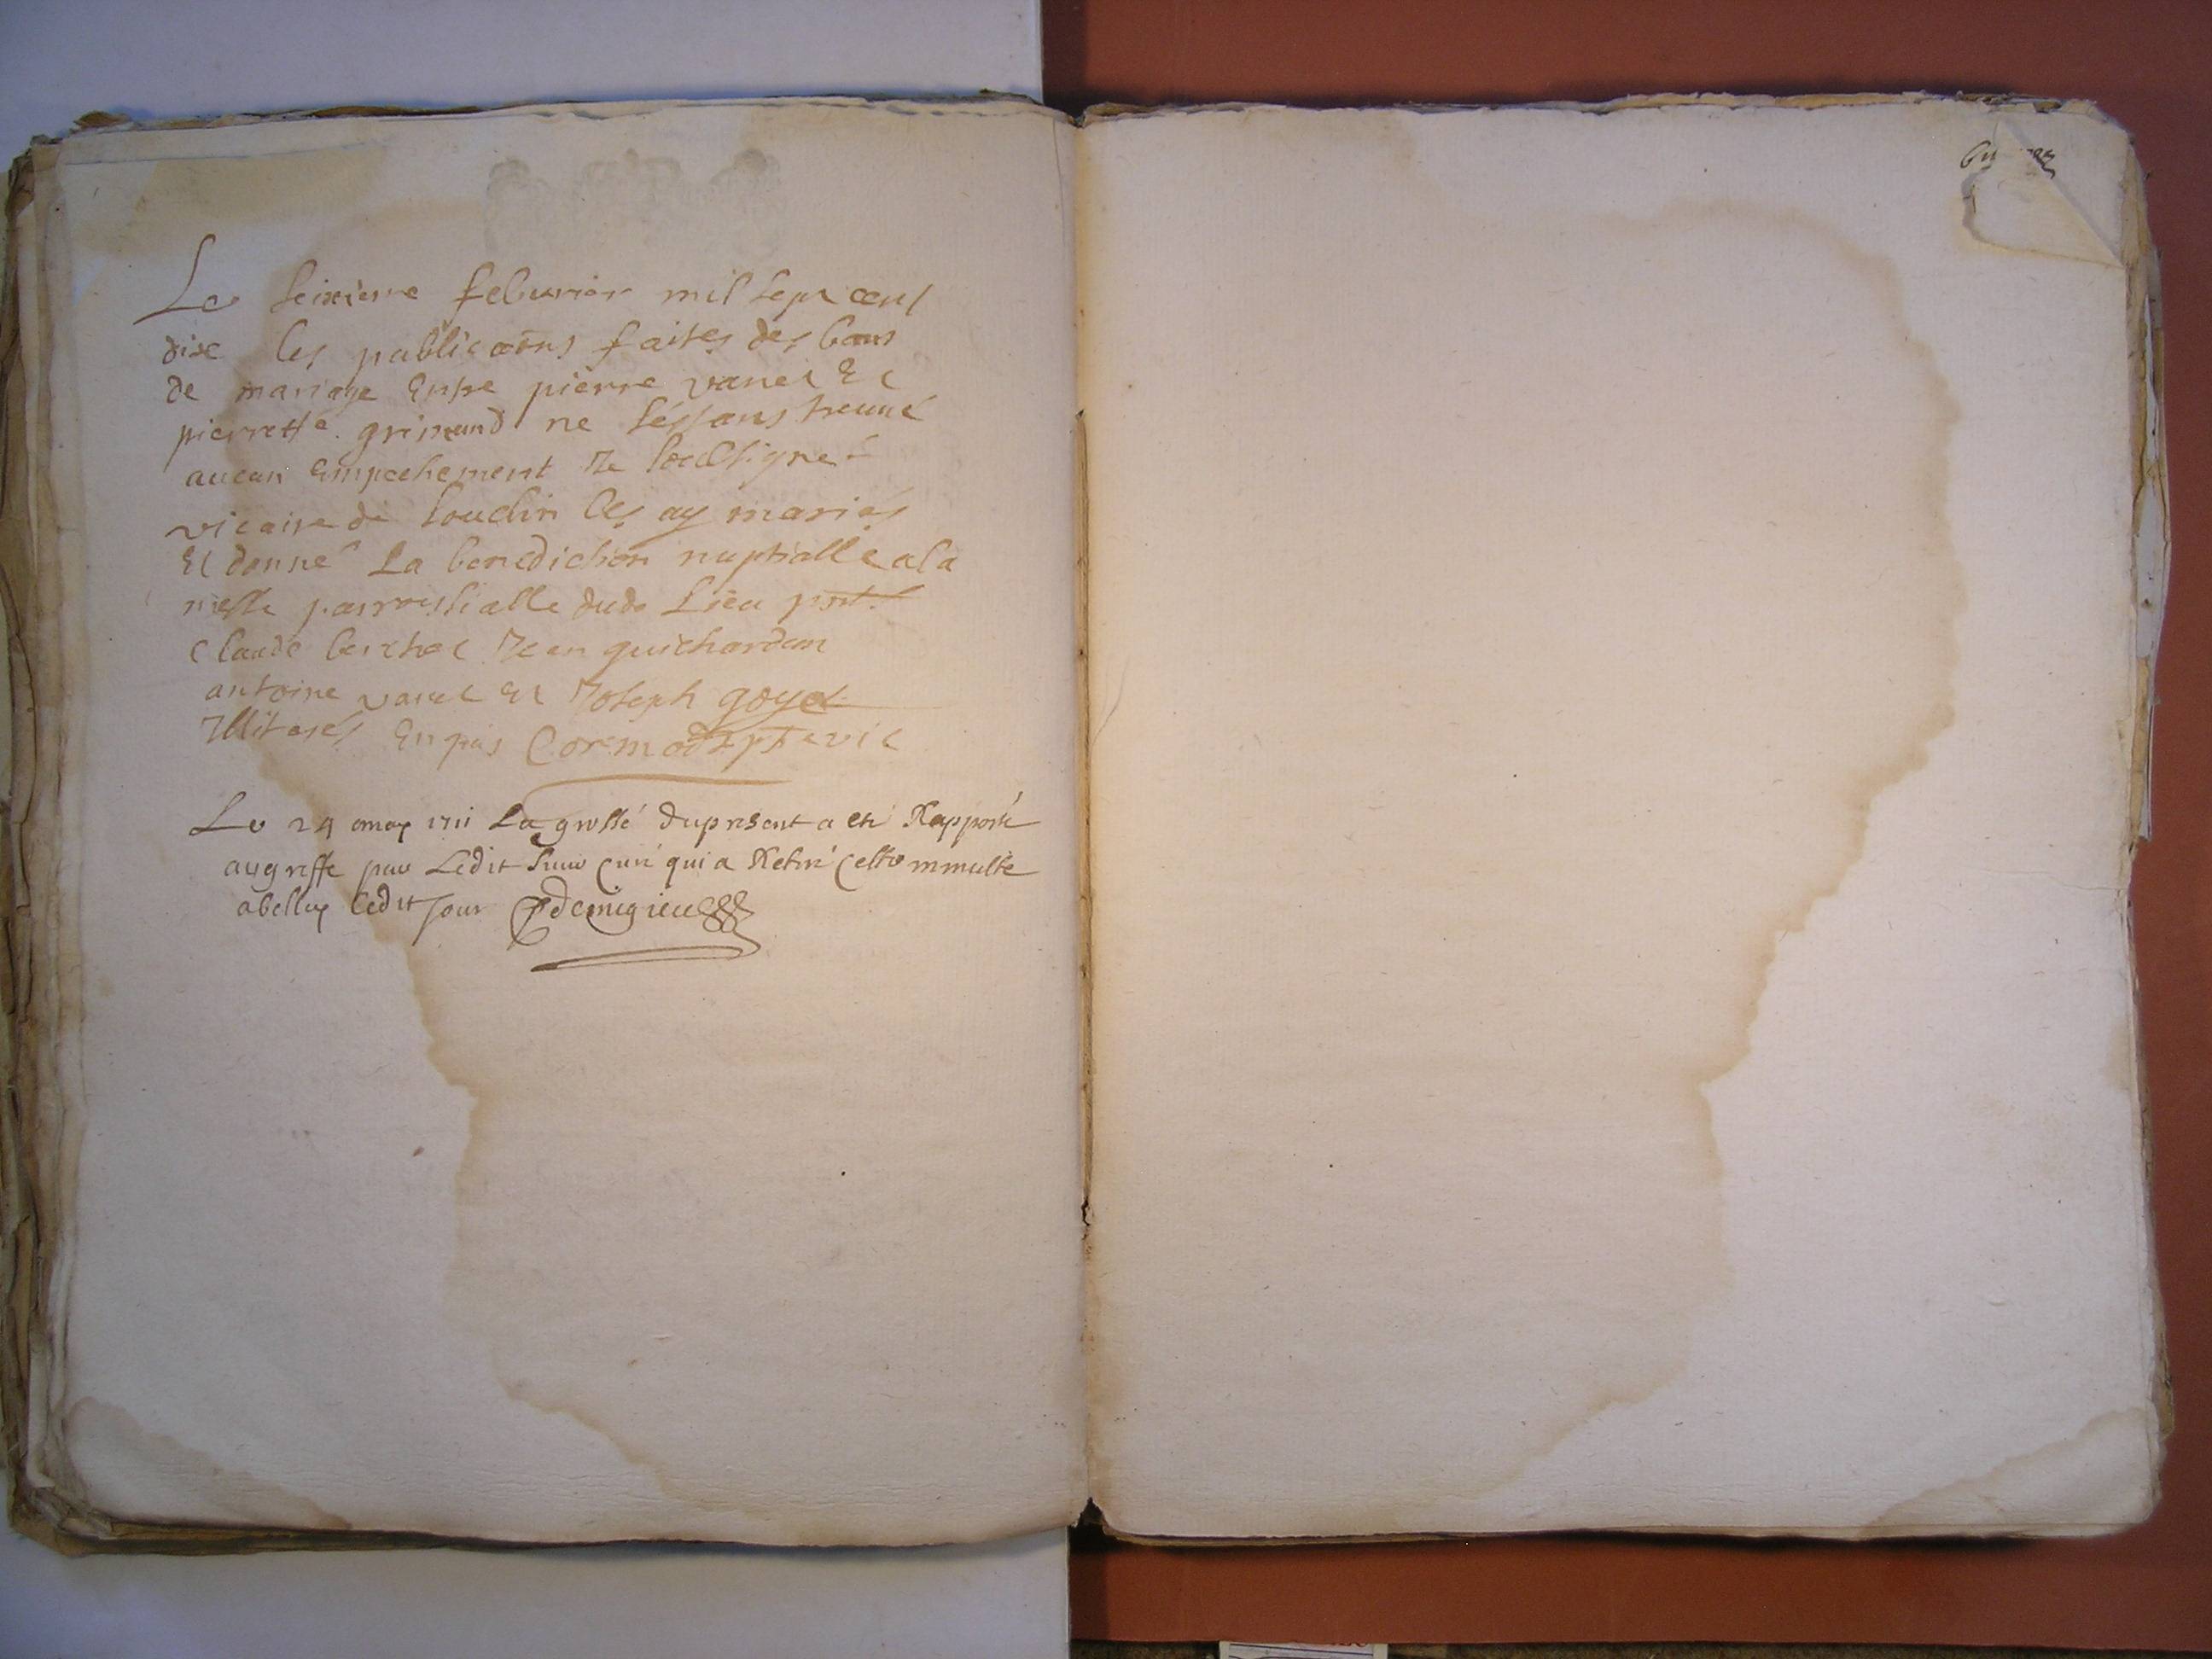 Le seixieme feburier mil sept cent
dixe les publicaōns faites des bans
de mariage Entre pierre vanel Et
pierrette grimand ne sestans treuué
aucun Empechement Je soubsigné
vicaire de les ay mariés
Et donné La benediction nuptialle a la
messe parroissialle dudᵗ Lieu pnt
Claude berthet Jean guichardan
antoine vanel Et Joseph goyet
Illiterés Enpñs Cormod ptre vic
Le 24 may 1711 La grosse du present a eté Rapporté
au greffe par Ledit Sieur Curé qui a Retiré Cette minutte
a belley Ledit Jour Demigieu